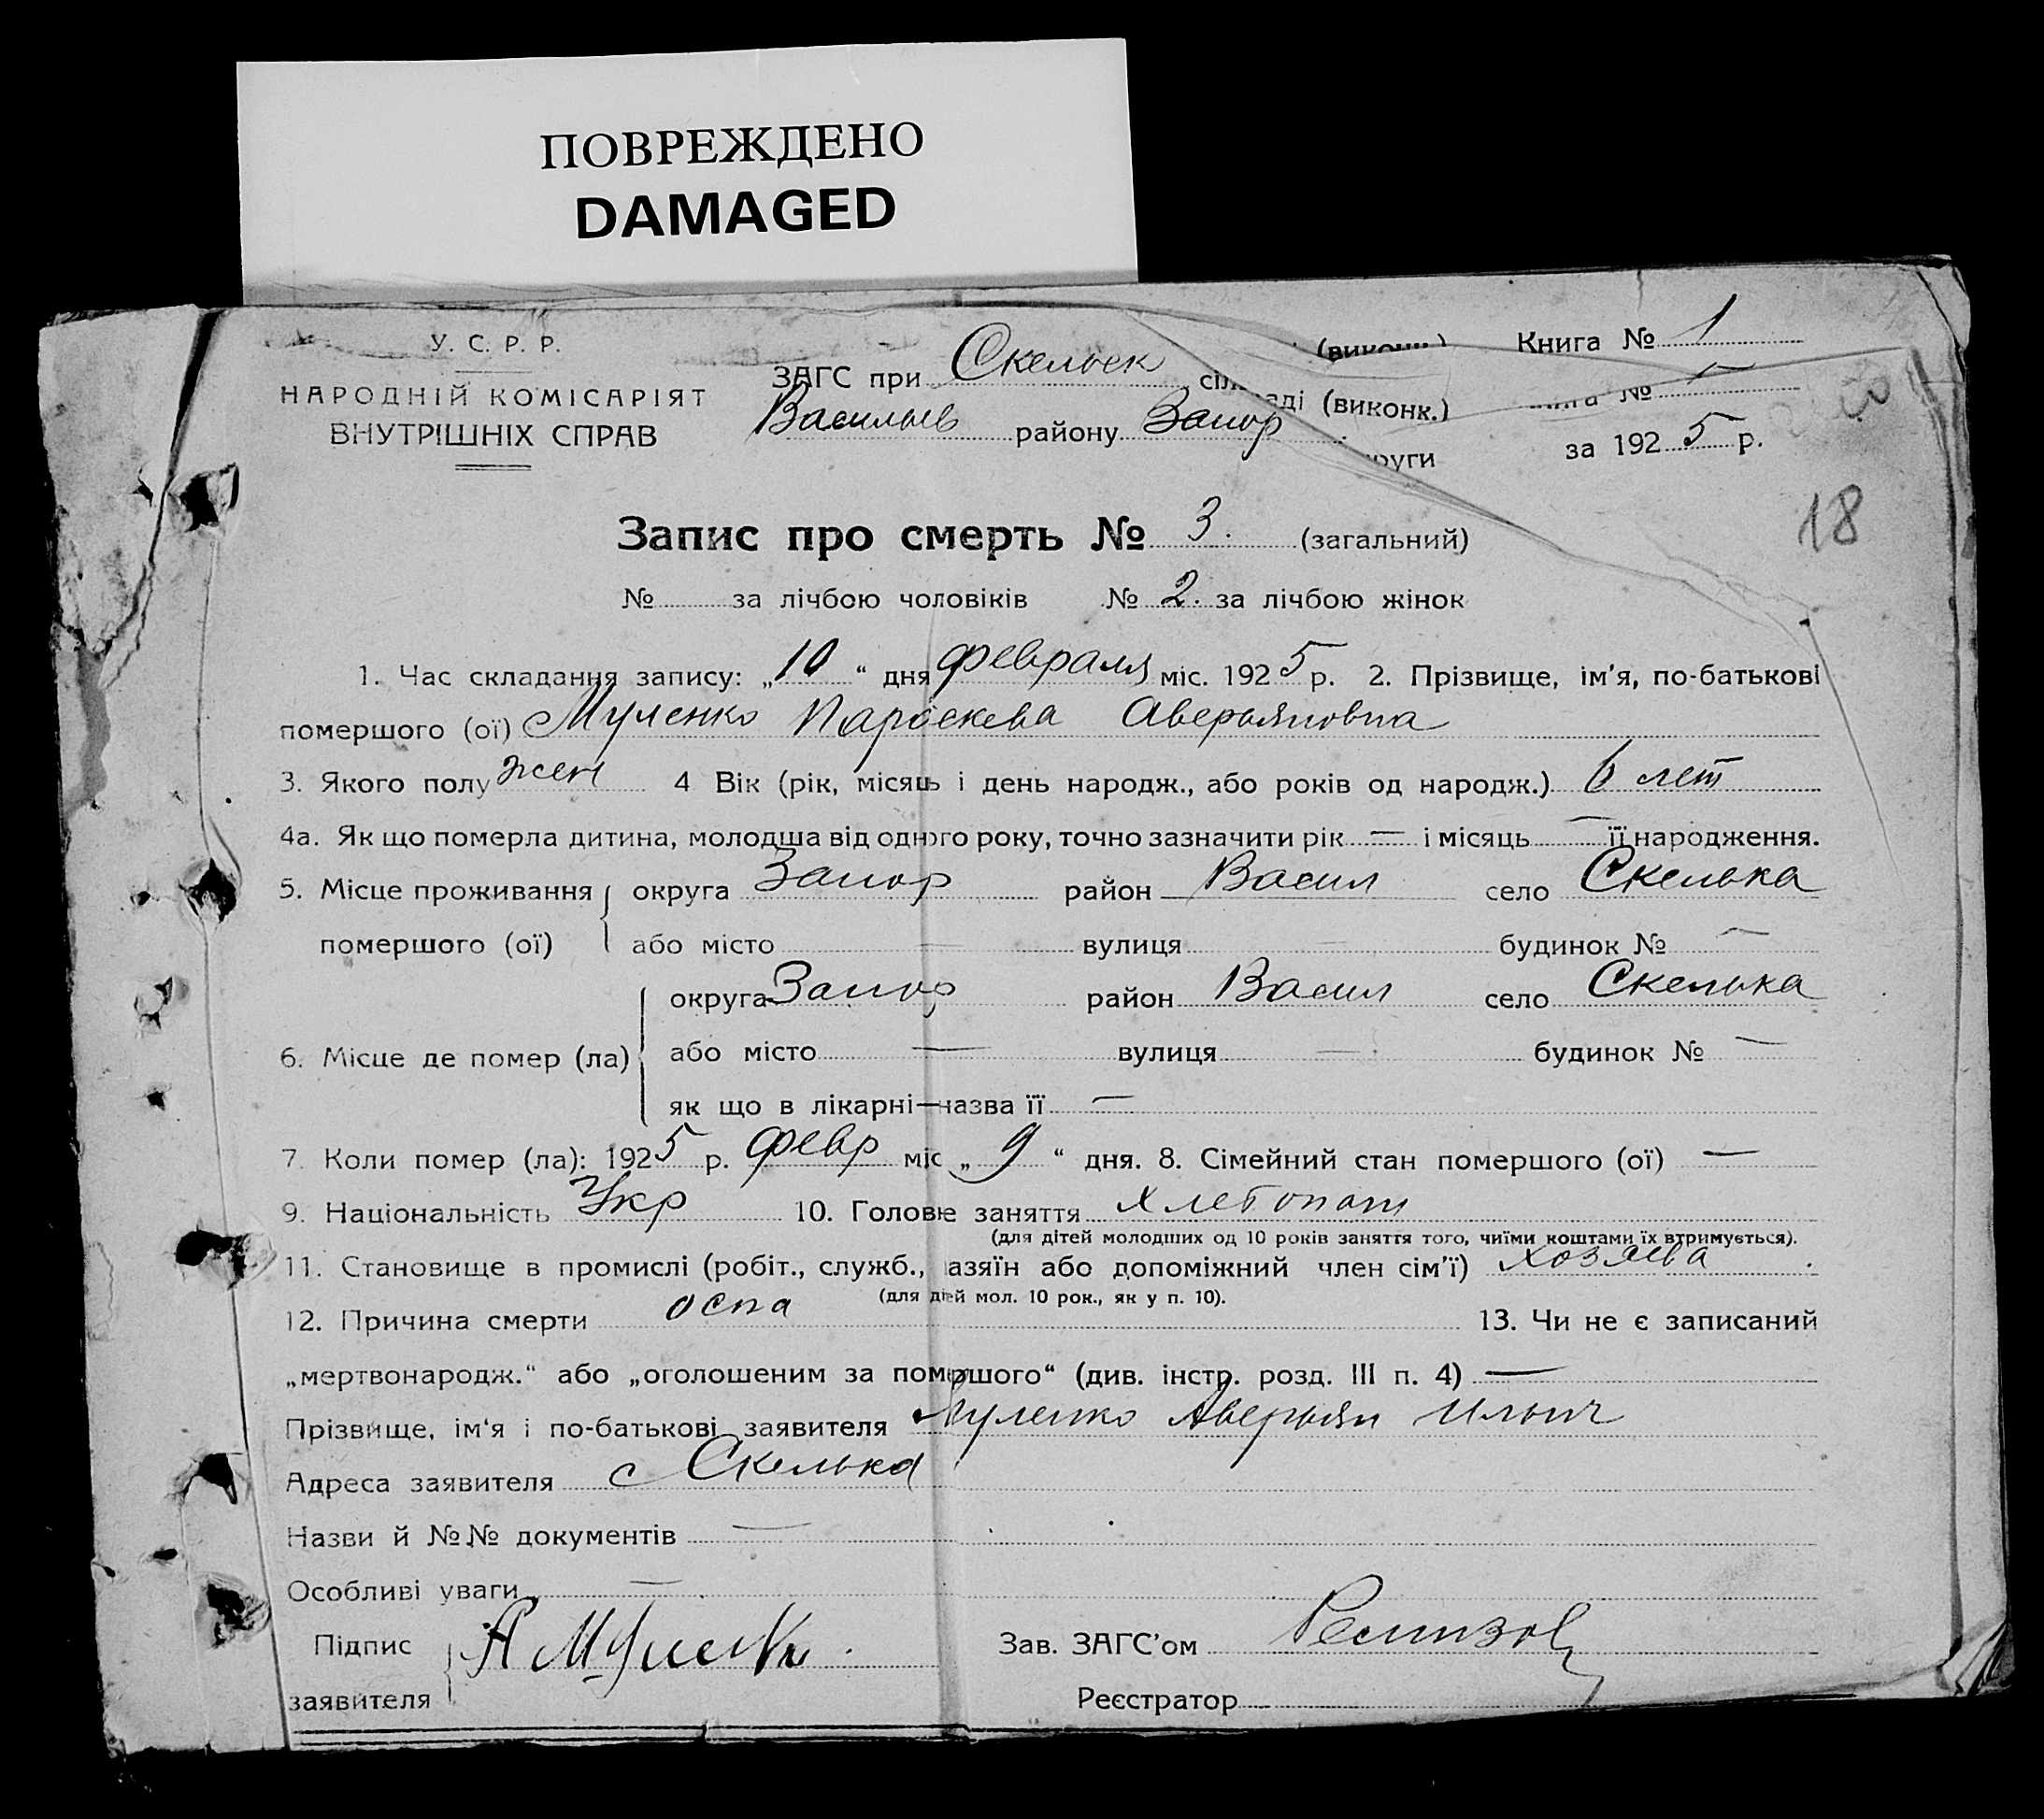 ПОВРЕЖДЕНО
DAMAGED
У. С. Р. Р.
НАРОДНІЙ КОМІСАРІЯТ
ВНУТРІШНІХ СПРАВ
ЗАГС при Скельек сіл (виконк.) Книга № 1
аді (виконк.) №
Васильев району Запор руги за 1925 р.
18
Запис про смерть № 3. (загальний)
№ за лічбою чоловіків № 2. за лічбою жінок
1. Час складання запису: „10“ дня февраля міс. 1925 р. 2. Прізвище, ім’я, по-батькові
помершого (ої) Муленко Параскева Аверьяновна
3. Якого полу жен 4 Вік (рік, місяць і день народж., або років од народж.) 6 лет
4а. Як що померла дитина, молодша від одного року, точно зазначити рік — і місяць — її народження.
5. Місце проживання округа Запор район Васил село Скелька
помершого (ої) або місто — вулиця — будинок № —
округа Запор район Васил село Скелька
6. Місце де помер (ла) або місто — вулиця — будинок № —
як що в лікарні—назва її —
7. Коли помер (ла): 1925 р. февр міс „9“ дня. 8. Сімейний стан помершого (ої) —
9. Національність Укр 10. Головне заняття хлебопаш
(для дітей молодших од 10 років заняття того, чиїми коштами їх втримується).
11. Становище в промислі (робіт., служб., хазяїн або допоміжний член сім’ї) хозяева
(для дітей мол. 10 рок., як у п. 10).
12. Причина смерти оспа 13. Чи не є записаний
„мертвонародж.“ або „оголошеним за помершого“ (див. інстр. розд. III п. 4) —
Прізвище, ім‘я і по-батькові заявителя Муленко Аверьян Ильич
Адреса заявителя с Скелька
Назви й №№ документів —
Особливі уваги —
Підпис А Муленко Зав. ЗАГС’ом
заявителя Реєстратор